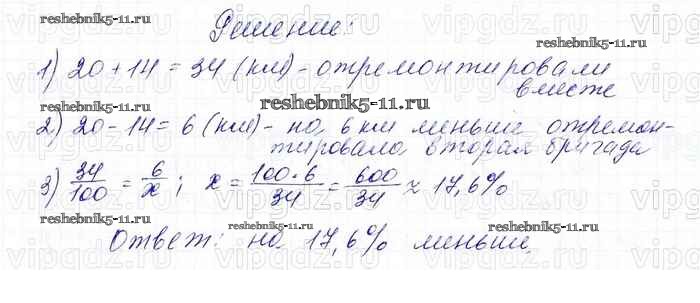 Решение:
reshebnik5-11.ru
reshebnik5-11.ru
1) 20 + 14 = 34 (км) - отремонтировали
вместе
reshebnik5-11.ru
2) 20 - 14 = 6 (км) - на 6 км меньше отремон-
тировала вторая бригада
3) 34/100 = 6/x ; x = 100·6/34 = 600/34 ≈ 17,6%
reshebnik5-11.ru
reshebnik5-11.ru
reshebnik5-11.ru
Ответ: на 17,6% меньше.
vipgdz.ru vipgdz.ru vipgdz.ru vipgdz.ru